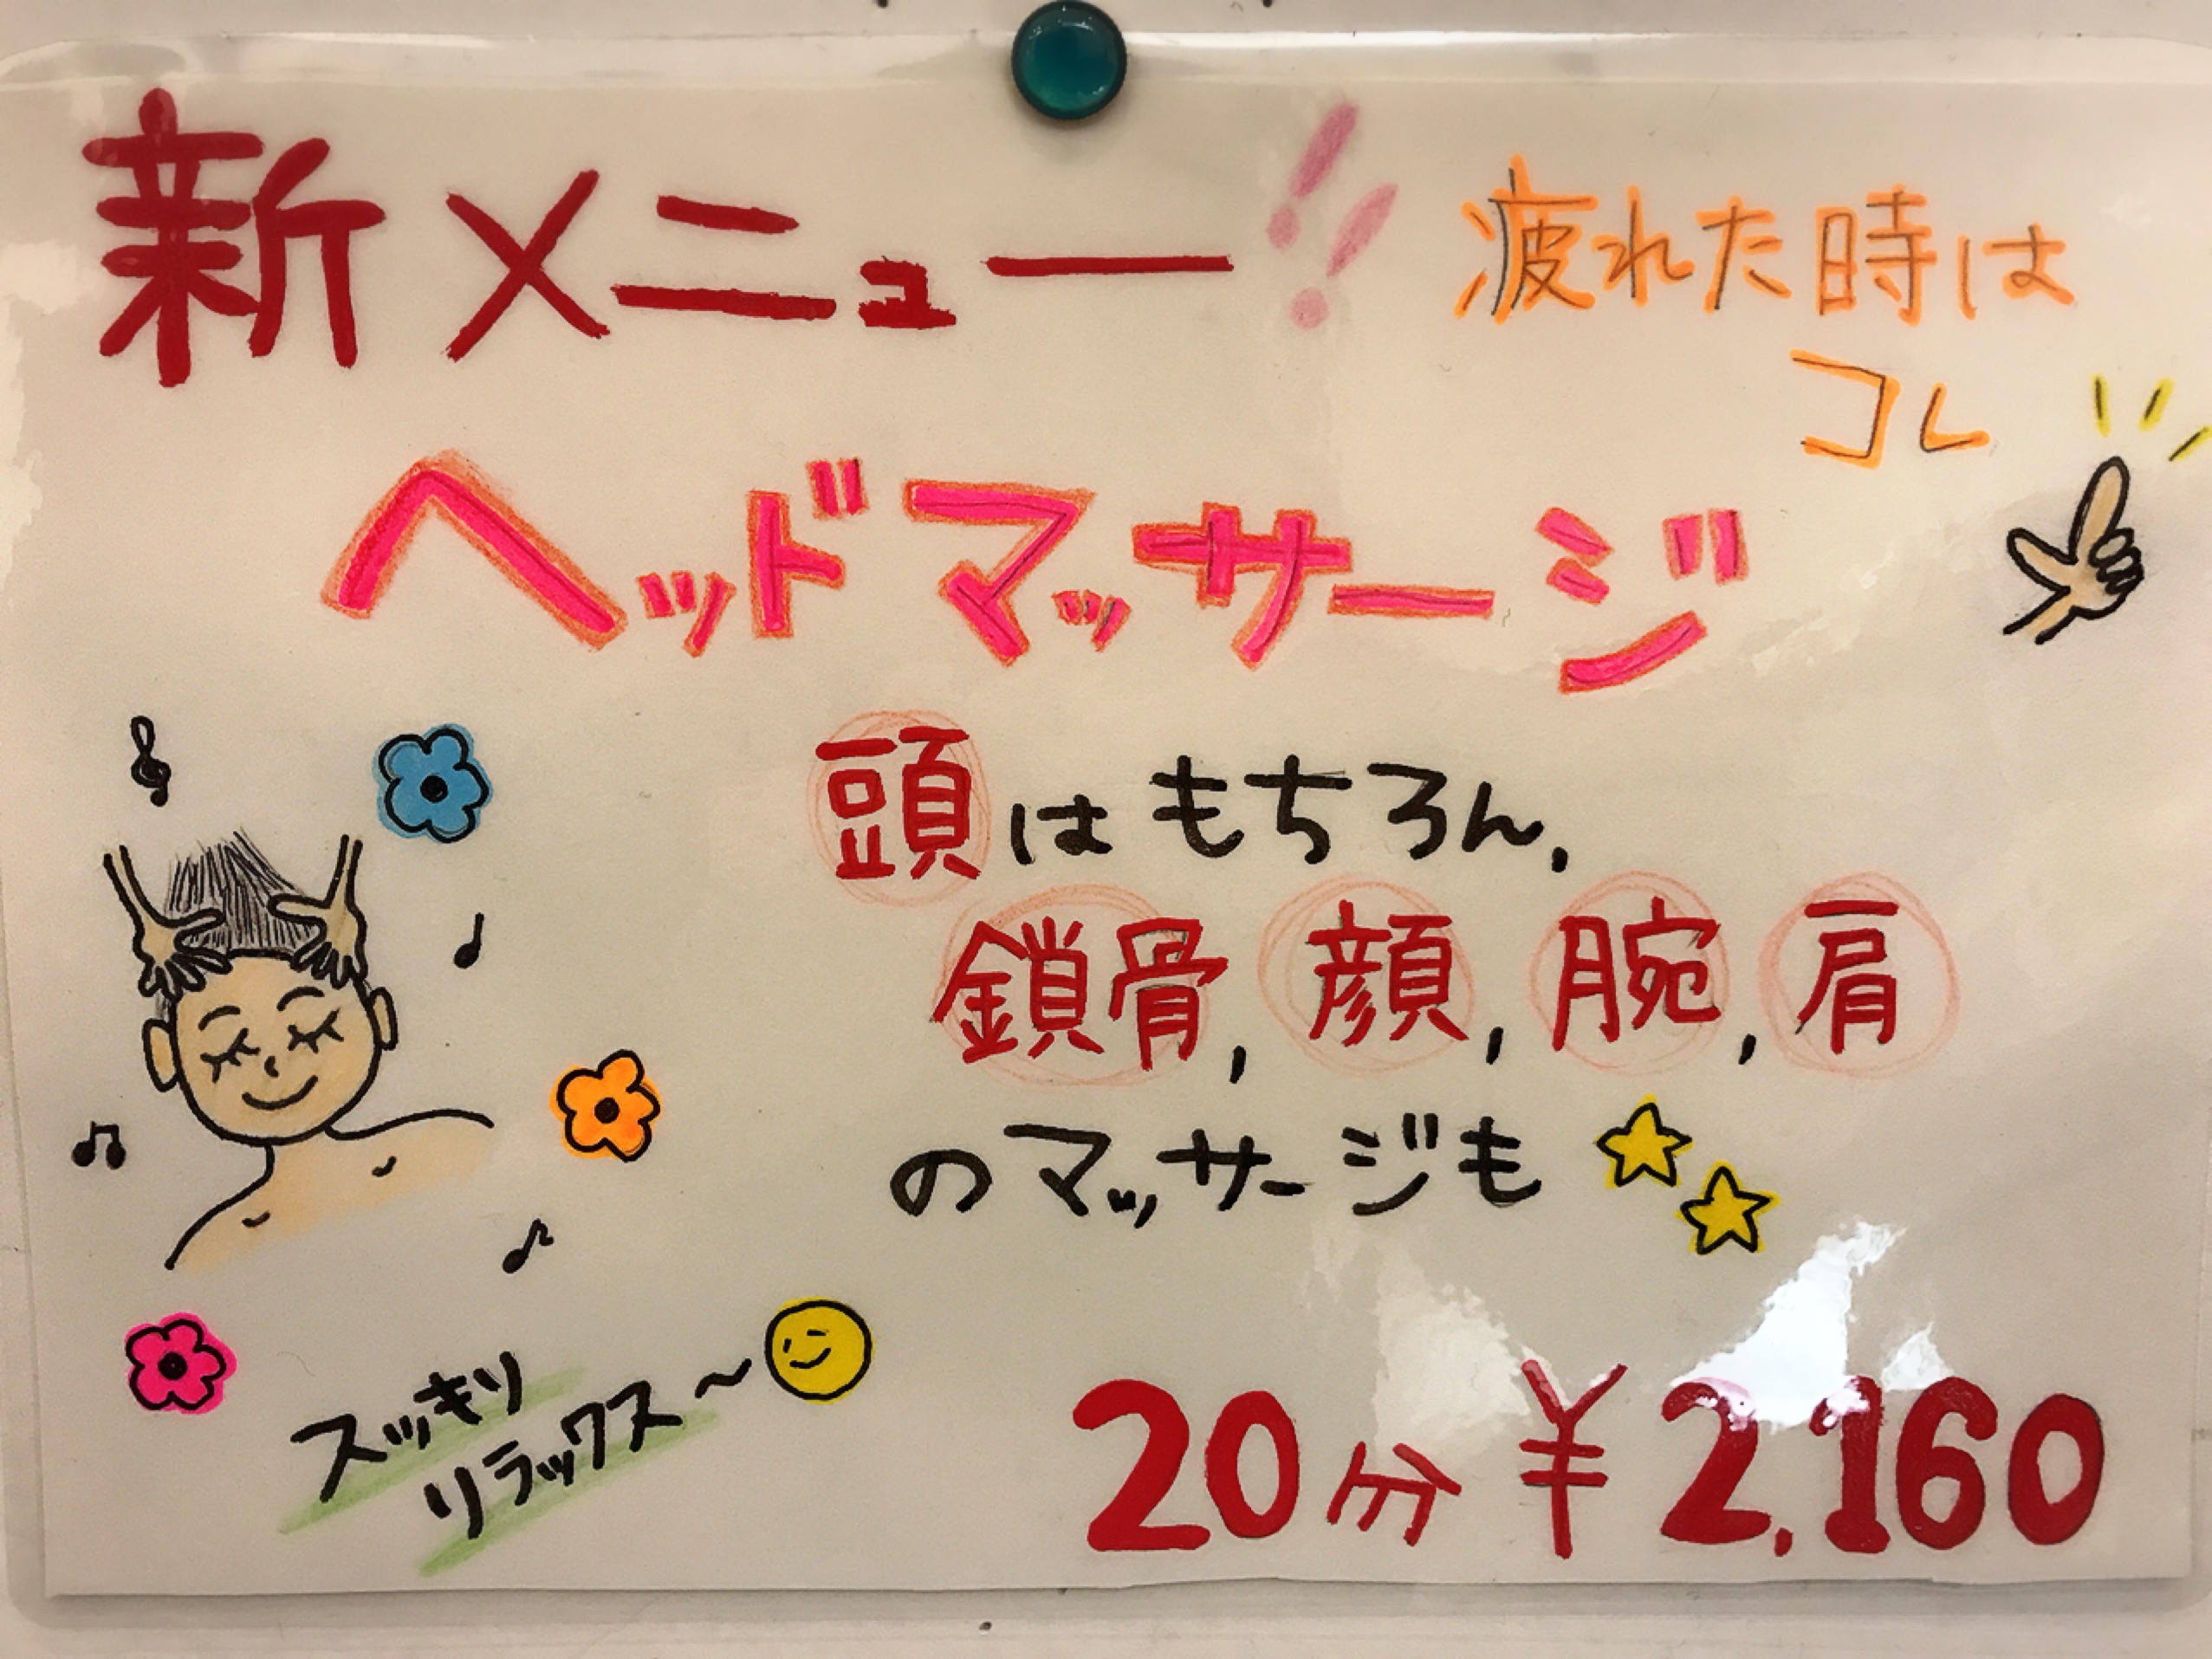 新メニュー!!
疲れた時は
コレ
ヘッドマッサージ
頭はもちろん,
鎖骨,顔,腕,肩
のマッサージも
スッキリ
リラックス～
20分¥2,160